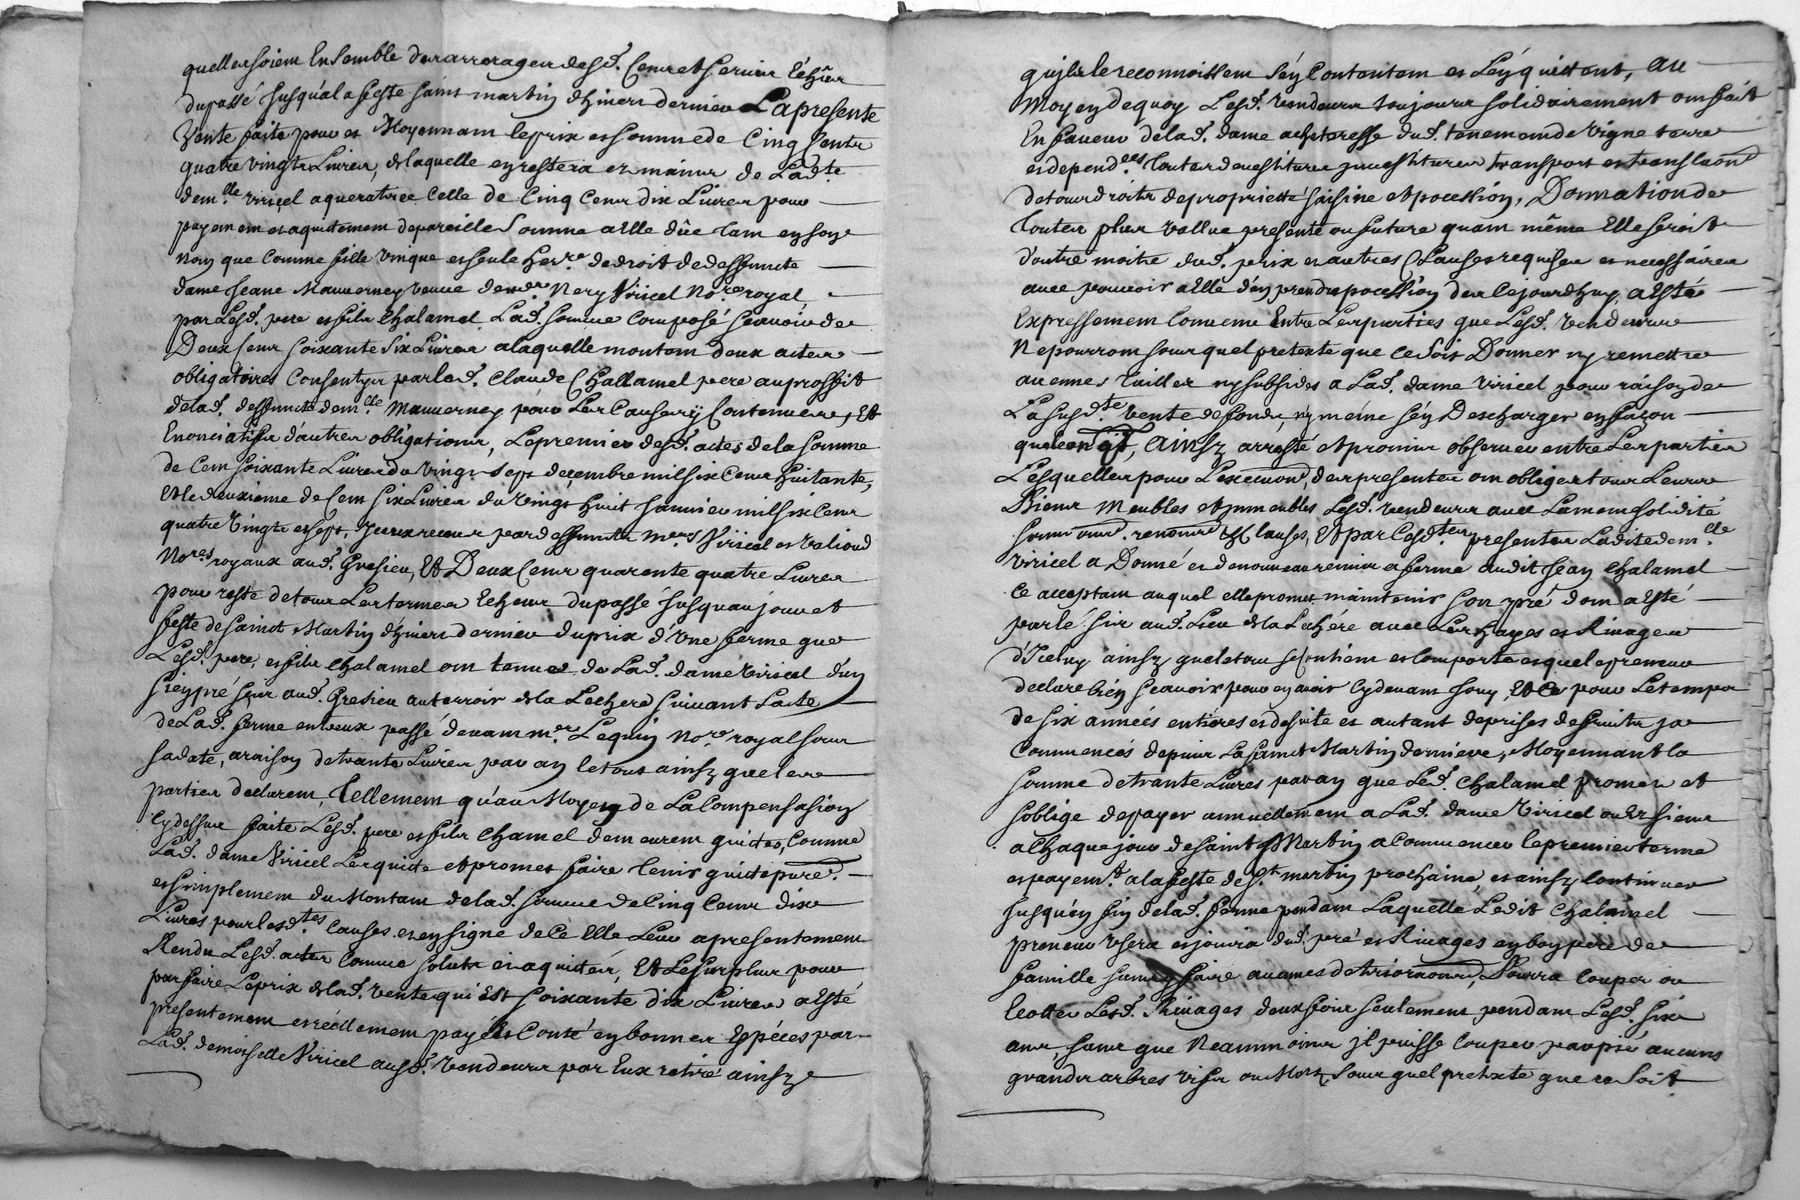 quelles soient Ensemble des arrerages desd. Cens et servis Echeus
du passé jusqu'à la feste saint martin d'hiver dernier La presente
Vente faite pour et Moyennant le prix et somme de Cinq Cents
quatre vingts Livres, de laquelle en restera ez mains de Lad.te
dem.lle viricel aqueratrice Celle de Cinq Cent dix Livres pour
payement et aquittement de pareille Somme a Elle düe tant en son
nom que Comme fille vnique et seule her.re de droit de deffuncte
dame Jeane Mauverney veuve de Nery Viricel No.re royal,
par Lesd. pere et fils Chalamel Lad. somme Composé scauoir de
Deux Cent soixante Six Livres a laquelle montent deux actes
obligatoires Consentys par led. Claude Challamel pere au proffit
de lad. deffuncte dem.lle Mauverney pour Les Causes y Contenues, Et
Enonciatifs d'autres obligations, Le premier desd. actes de la somme
de Cent soixante Livres du vingt sept decembre mil six Cens huitante,
Et le deuxieme de Cent six Livres du vingt huit Janvier mil six Cens
quatre Vingts et sept, receus par deffuncts m.res Viricel et
No.res royaux aud. Gresieu, Et Deux Cent quarente quatre Livres
pour reste de tous Les termes Echeus du passé jusquau jour et
feste de Sainct Martin d'hiver dernier du prix d'vne ferme que
Lesd. pere et fils Chalamel ont tenue de Lad. dame viricel d'un
sien pré scis aud. Gresieu au terroir de la Lechere suivant Lacte
de Lad. ferme entreux passé devant m.re Lequin No.re royal sous
sa date, a raison de trante Livres par an le tout ainsy que les
parties declarent, Tellement qu'au Moyen de La Compensasion
Cy dessus faite Lesd. pere et fils Chamel demeurent quictes, Comme
Lad. dame Viricel Les quicte et promet faire tenir quictepure.
et simplement du Montant de lad. somme de Cinq Cens dix
Livres pour les d.tes Causes et en signe de Ce Elle Leur a presentement
Rendu Lesd. actes Comme soluts et aquittés, Et Le surplus pour
parfaire Le prix de lad. vente qui Est soixante dix Livres a Esté
presentement et réellement payé et Conté en bonnes Espéces par
Lad. demoiselle Viricel ausd. Vendeurs par Eux retiré ainsy
qu'ils le reconnoissent s'en Contentent et L'en quittent, Au
Moyen de quoy Lesd. vendeurs toujours solidairement ont fait
En faveur de lad. dame achetresse dud. tenement de Vigne terre
et depend.ces Toutes devestitures jnvestitures transport et translaon
de tous droits de propriette saisine et pocession, Donnation de
Toutes plus vallue presente ou future quant même Elle seroit
d'outre moitié dud. prix et autres Clauses requises et necessaires
avec pouvoir a Elle d'en prendre pocession des Cejourdhuy, a Esté
Expressement Convenu Entre Les parties que Lesd. vendeurs
Ne pourront sous quel pretexte que ce soit Donner ny remettre
aucunes tailles ny subsides a Lad. dame viricel pour raison de
La susd.te vente de fonds, ny même s'en Descharger en façon
quelconq, Ainsy arresté et promis observer entre Les parties
Lesquelles pour L'execuon des presentes ont obligés tous Leurs
Biens Meubles et jmmeubles Lesd. vendeurs avec La meme solidité
renonçaon et Clauses, Et par Cesd.tes presentes Ladite dem.lle
viricel a Donné et de nouveau remis a ferme audit Jean Chalamel
Ce acceptant auquel elle promet maintenir son pré dont a Esté
parlé sis aud. Lieu de la Lechere avec Les hayes et Rivages
d'Iceluy ainsy que le tout se Contient et Comporte et que le preneur
declare bien scavoir pour en avoir Cy devant jouy, Et Ce pour Le temps
de six années entieres et de suite et autant de prises de fruits ja
Commencés depuis La Sainct Martin derniere, Moyennant la
somme de trante Livres par an que Led. Chalamel promet et
s'oblige de payer annuellement a Lad. dame Viricel ou Ez siens
a Chaque jour de saint Martin a Commencer le premier terme
et payem.t a la feste de S.t martin prochaine et ainsy Continuer
jusqu'en fin de lad. ferme pendant Laquelle Ledit Chalamel
preneur vsera et jouira dud. pré et Rivages en bon pere de
famille sans y faire aucunes detrioraons, Pourra Couper ou
Ecotter Lesd. Rivages deux fois seulement pendant Lesd. six
ans, sans que Neanmoins jl puisse Couper par pié aucuns
grands arbres vifs ou Morts sous quel pretexte que ce soit